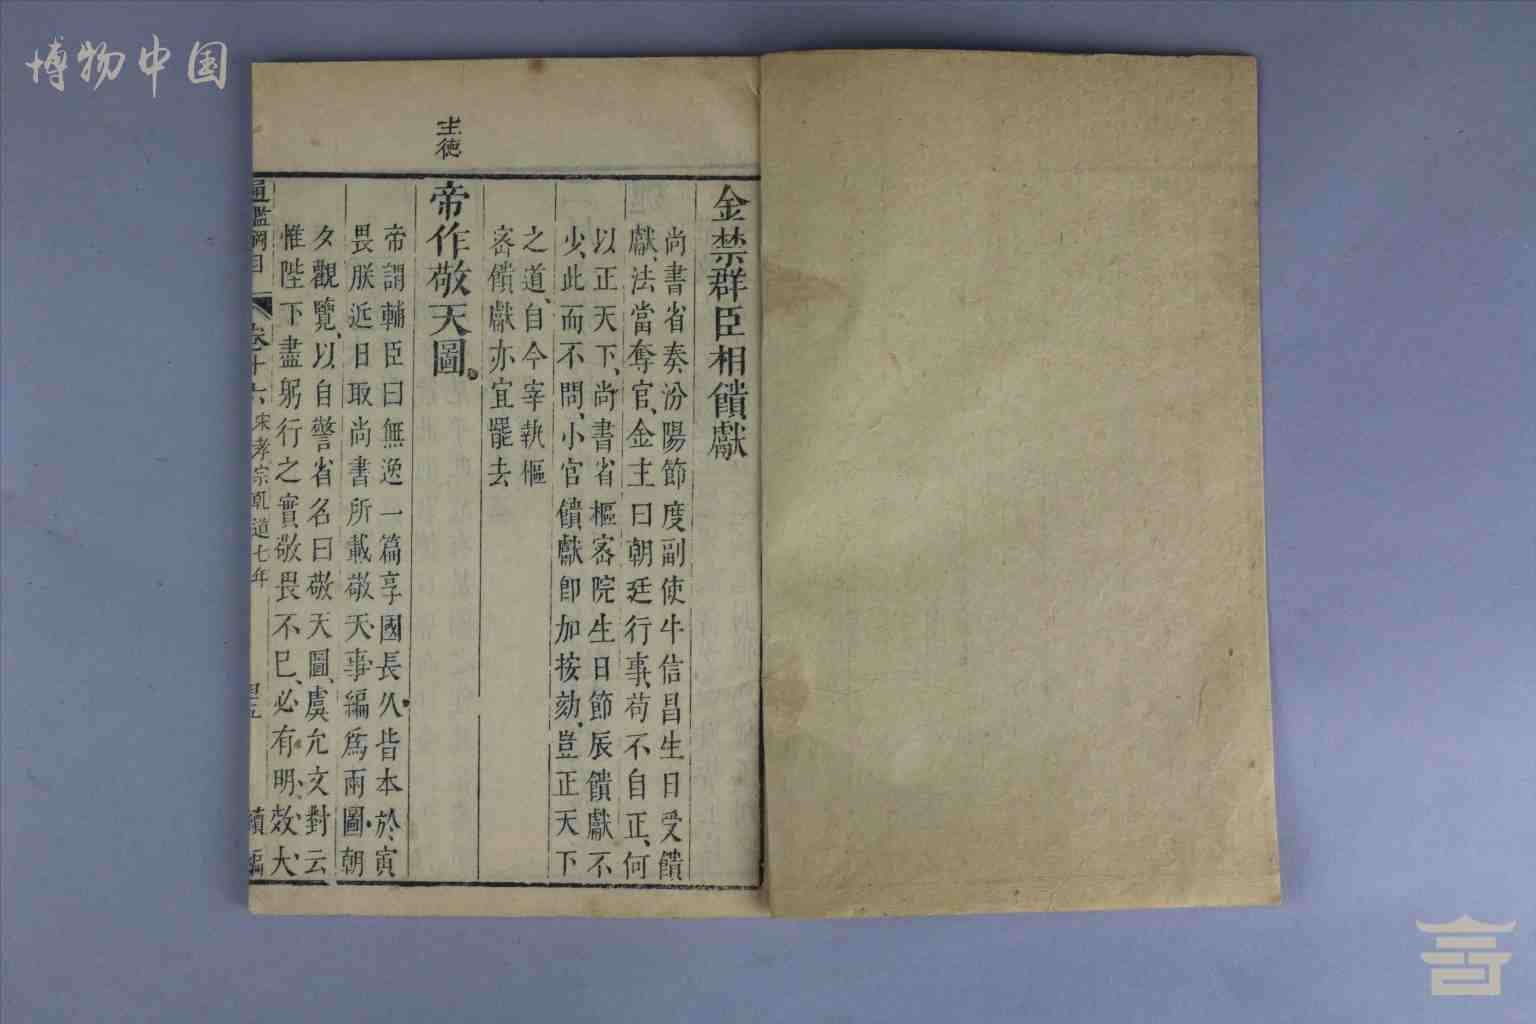 博物中国
主德
金禁群臣相饋獻
尚書省奏汾陽節度副使牛信昌生日受饋
獻、法當奪官、金主曰朝廷行事、苟不自正、何
以正天下、尚書省樞密院生日節辰饋獻不
少、此而不問、小官饋獻卽加按劾、豈正天下
之道、自今宰執樞
密饋獻亦宜罷去
帝作敬天圖
帝謂輔臣曰無逸一篇享國長久皆本於寅
畏朕近日取尚書所載敬天事編爲兩圖朝
夕觀覽、以自警省名曰敬天圖、虞允文對云
惟陛下盡躬行之實敬畏不已、必有明效大
通鑑綱目
卷十六
宋孝宗乾道七年
續編